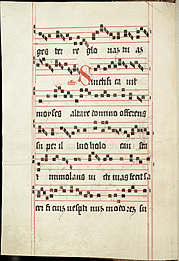 ges terre glo riam tu am
Sanctifi ca vit
moyses altare domino offerens
su per il lud holo cau sta
immolans vi cti mas fecit sa
cri fi cium vesper ti num in odorem su